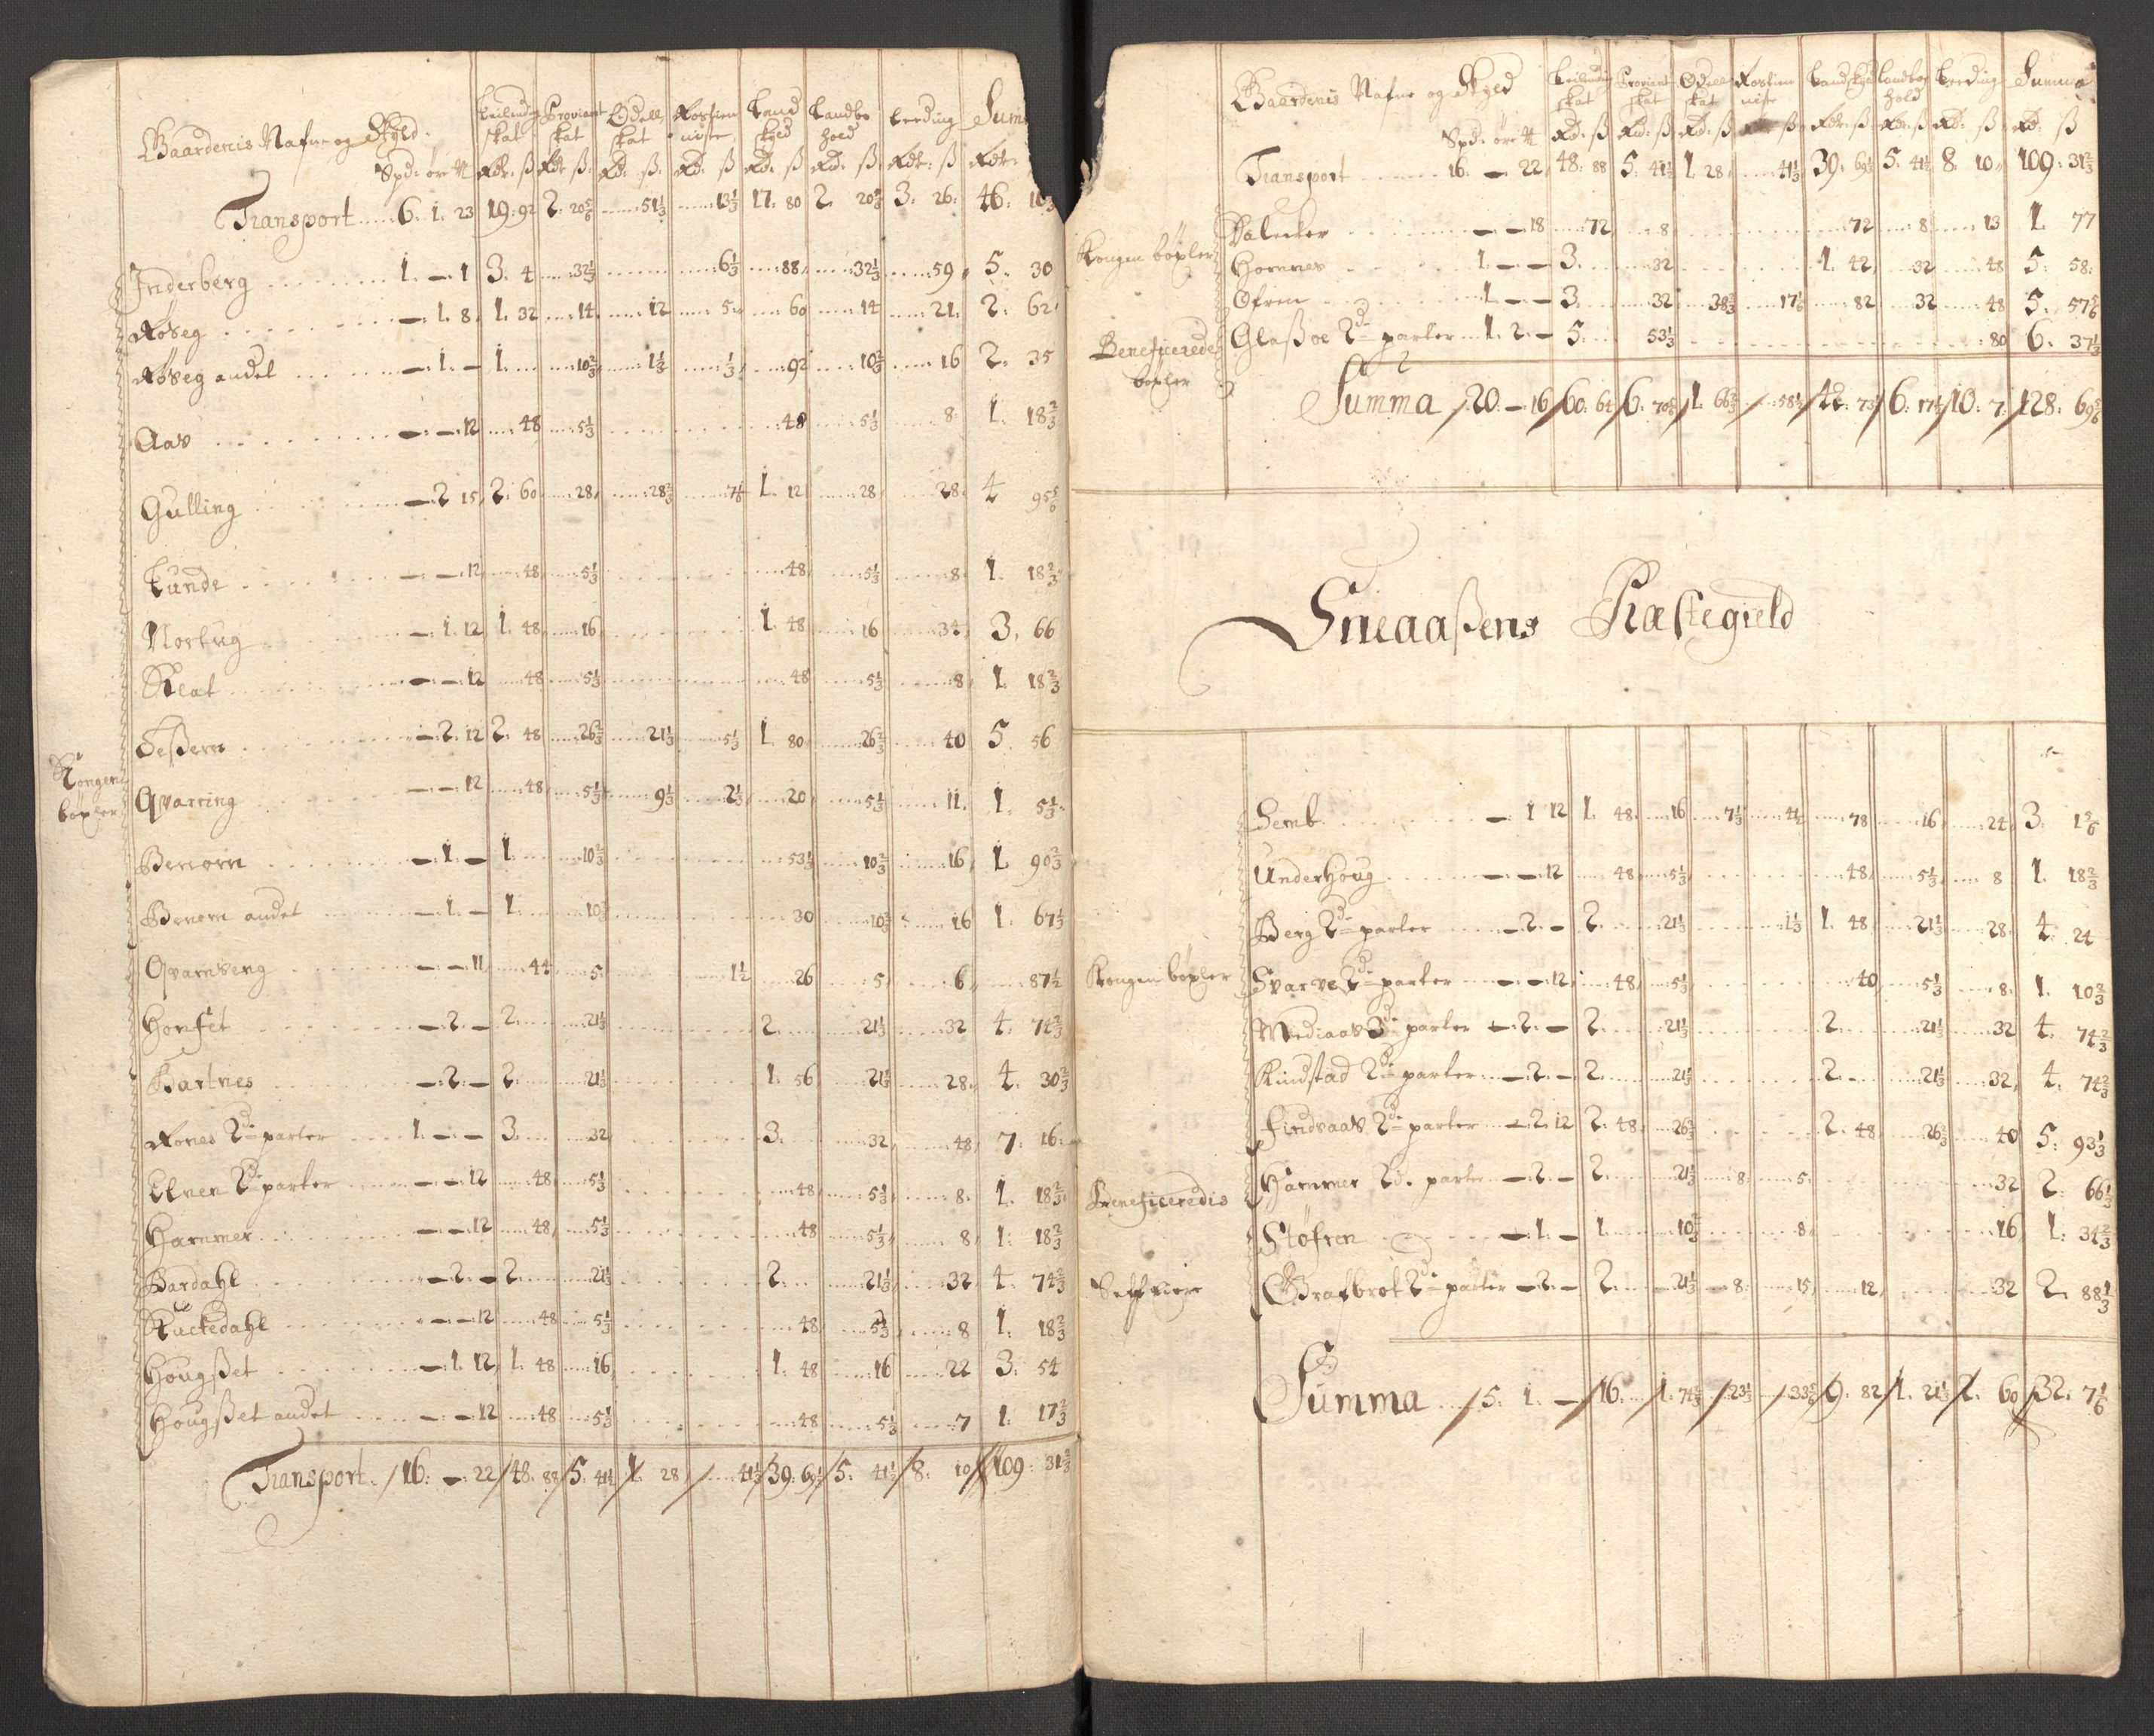 Gaardenis Nafne og Skyld. Leilending skat Proviant skat Odell skat Rostieniste Land skyld Landbo hold Leeding Sum
Spd: öre ℔ Rdr. ß Rdr ß: Rd: ß: Rd: ß Rd: ß Rd: ß: Rdr: ß Rdr:
Transport 6. 1. 23 19: 92 2: 20 5/6 51 1/3 13 1/3 17. 80 2. 20 5/6 3. 26: 46:
Inderberg 1. – 1 3. 4 32 1/3 6 1/3 88 32 1/3 59 5. 30
Röseg – 1. 8 1. 32 14 12 5 60 14 21. 2: 62
Röseg andet – 1. – 1. 10 2/3 1 1/3 1/3 92 10 2/3 16 2. 35
Aas – – 12 48 5 1/3 48 5 1/3 8: 1. 18 2/3
Gulling – 2 15 2. 60 28 28 2/3 7 1/6 1. 12 28 28 4 95 5/6
Lunde – – 12 48 5 1/3 48 5 1/3 8 1. 18 2/3
Norbug – 1. 12 1. 48 16 1. 48 16 34 3. 66
Kleat – – 12 48 5 1/3 48 5 1/3 8 1. 18 2/3
Seßem – 2. 12 2. 48 26 2/3 21 1/3 5 1/3 1. 80 26 2/3 40 5. 56
Kongens böxler Qvarring – – 12 48 5 1/3 9 1/3 2 1/3 20 5 1/3 11. 1. 5 1/3
Benem – 1. – 1. 10 2/3 53 1/3 10 2/3 16 1. 90 2/3
Benem andet – 1. – 1. 10 2/3 30 10 2/3 16 1. 67 1/3
Qvamseng – – 11 44 5 1 1/2 26 5 6 87 1/2
Honset – 2. – 2. 21 1/3 2. 21 1/3 32 4. 74 2/3
Bartnes – 2. – 2. 21 1/3 1. 56 21 1/3 28. 4. 30 2/3
Rones 2de parter 1. – – 3. 32 3. 32 48 7. 16
Elnen 2de parter – – 12 48 5 1/3 48 5 1/3 8. 1. 18 2/3
Hammer – – 12 48 5 1/3 48 5 1/3 8 1. 18 2/3
Bardahl – 2. – 2. 21 1/3 2. 21 1/3 32 4. 74 2/3
Kuckedahl – – 12 48 5 1/3 48 5 1/3 8 1. 18 2/3
Hougßet – 1. 12 1. 48 16 1. 48 16 22 3: 54
Hougßet andet – – 12 48 5 1/3 48 5 1/3 7 1. 17 2/3
Transport / 16: – 22 / 48. 88 / 5. 41 1/2 / 1. 28 / 41 1/3 / 39: 69 1/2 / 5. 41 1/2 / 8. 10 / 109: 31 2/3
Gaardenis Nafne og Skyld Leilending skat Proviant skat Odell skat Rostieniste Land skyld Landbo hold Leeding Summa
Spd: öre ℔ Rd: ß Rd: ß Rd: ß Rd ß Rdr: ß Rdr: ß Rd: ß Rd: ß
Transport 16. – 22 48: 88 5. 41 1/2 1. 28 41 1/3 39: 69 1/2 5. 41 1/2 8. 10 109: 31 2/3
Dalecker – – 18 72 8 72 8 13 1. 77
Kongens böxler Hornnes 1. – – 3. 32 1. 42 32 48 5: 58:
Öfren 1. – – 3. 32 38 2/3 17 1/6 82 32 48 5. 57 5/6
Beneficerede böxler Glaßoe 2de parter 1. 2. – 5. 53 1/3 80 6. 37 1/3
Summa / 20. – 16 / 60: 64 / 6. 70 5/6 / 1. 66 2/3 / 58 1/2 / 42. 73 1/2 / 6. 17 1/2 / 10. 7 / 128. 69 5/6
Sneaaßens Præstegield
Semb – 1 12 1. 48. 16 7 1/3 4 1/2 78 16 24 3. 1 5/6
Underhoug – – 12 48 5 1/3 48 5 1/3 8 1. 18 2/3
Berg 2de parter – 2. – 2. 21 1/3 1 1/3 1. 48 21 1/3 28. 4. 24
Kongens böxler Svarve 2de parter – – 12 48 5 1/3 40 5 1/3 8. 1. 10 2/3
Mediaas 3de parter – 2. – 2. 21 1/3 2. 21 1/3 32 4. 74 2/3
Kindstad 2de parter – 2. – 2. 21 1/3 2. 21 1/3 32 4. 74 2/3
Findsaas 2de parter – 2. 12 2. 48 26 2/3 2. 48 26 2/3 40 5. 93 1/3
Beneficeredis Hammer 2de parter – 2. – 2. 21 1/3 8 5. 32 2. 66 1/3
Stöfren – 1. – 1. 10 2/3 8 16 1. 34 2/3
Selfeiere Grafbrot 2de parter – 2. – 2. 21 1/3 8. 15 12 32 2. 88 1/3
Summa / 5. 1. – / 16. / 1. 74 2/3 / 23 1/3 / 33 5/6 / 9. 82 / 1. 21 1/3 / 2. 60 / 32. 7 1/6